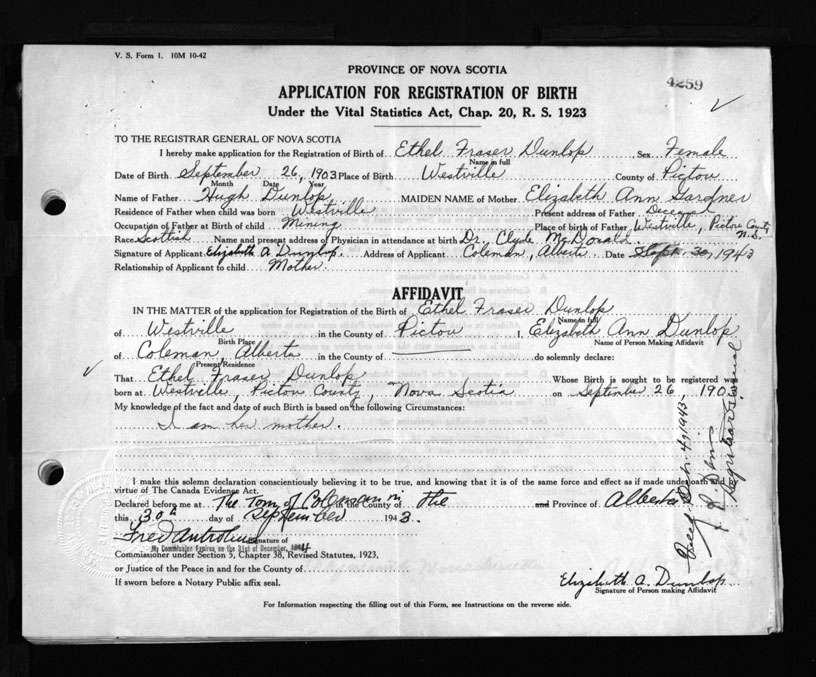 V. S. Form 1. 10M 10-42
PROVINCE OF NOVA SCOTIA
4259
APPLICATION FOR REGISTRATION OF BIRTH
Under the Vital Statistics Act, Chap. 20, R. S. 1923
TO THE REGISTRAR GENERAL OF NOVA SCOTIA
I hereby make application for the Registration of Birth of Ethel Fraser Dunlop, Sex Female
Name in full
Date of Birth September 26, 1903 Place of Birth Westville County of Pictou
Month Date Year
Name of Father Hugh Dunlop MAIDEN NAME of Mother Elizabeth Ann Gardner
Residence of Father when child was born Westville Present address of Father Deceased
Occupation of Father at Birth of child Mining Place of birth of Father Westville, Pictou County N.S.
Race Scottish Name and present address of Physician in attendance at birth Dr. Clyde McDonald
Signature of Applicant Elizabeth A Dunlop. Address of Applicant Coleman, Alberta. Date Sept. 30, 1943
Relationship of Applicant to child Mother.
AFFIDAVIT
IN THE MATTER of the application for Registration of the Birth of Ethel Fraser Dunlop
Name in full
of Westville in the County of Pictou I, Elizabeth Ann Dunlop
Birth Place Name of Person Making Affidavit
of Coleman, Alberta in the County of do solemnly declare:
Present Residence
That Ethel Fraser Dunlop Whose Birth is sought to be registered was
born at Westville, Pictou County, Nova Scotia on September 26 1903
My knowledge of the fact and date of such Birth is based on the following Circumstances:
I am her mother.
I make this solemn declaration conscientiously believing it to be true, and knowing that it is of the same force and effect as if made under oath and by
virtue of The Canada Evidence Act.
Declared before me at The Town of Coleman in the County of the and Province of Alberta
this 30th day of September 1943.
Fred Antrobus
Signature of
My Commission Expires on the 31st of December, 1944
Commissioner under Section 5, Chapter 38, Revised Statutes, 1923,
or Justice of the Peace in and for the County of
If sworn before a Notary Public affix seal.
Elizabeth A. Dunlop
Signature of Person making Affidavit
For Information respecting the filling out of this Form, see Instructions on the reverse side.
Registrar General